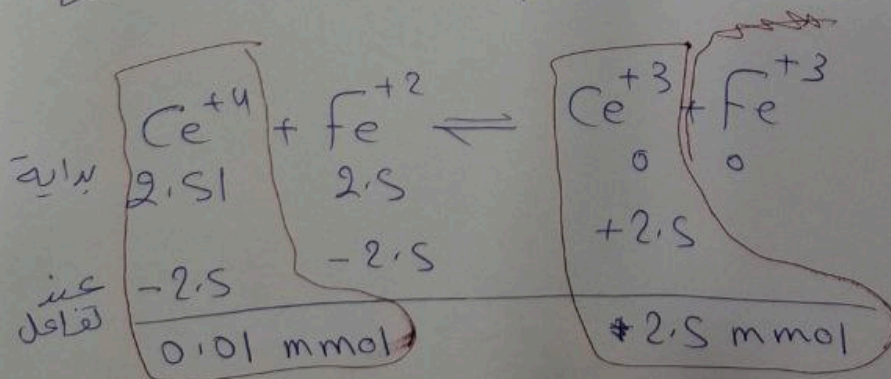 Ce+4 + Fe+2 ⇌ Ce+3 + Fe+3
بداية 2.51 2.5 0 0
عند تفاعل -2.5 -2.5 +2.5
0.01 mmol 2.5 mmol